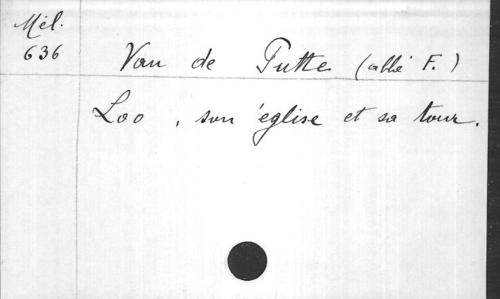 Mél.
636
Van de Putte (abbé F.)
Loo, son église et sa tour.